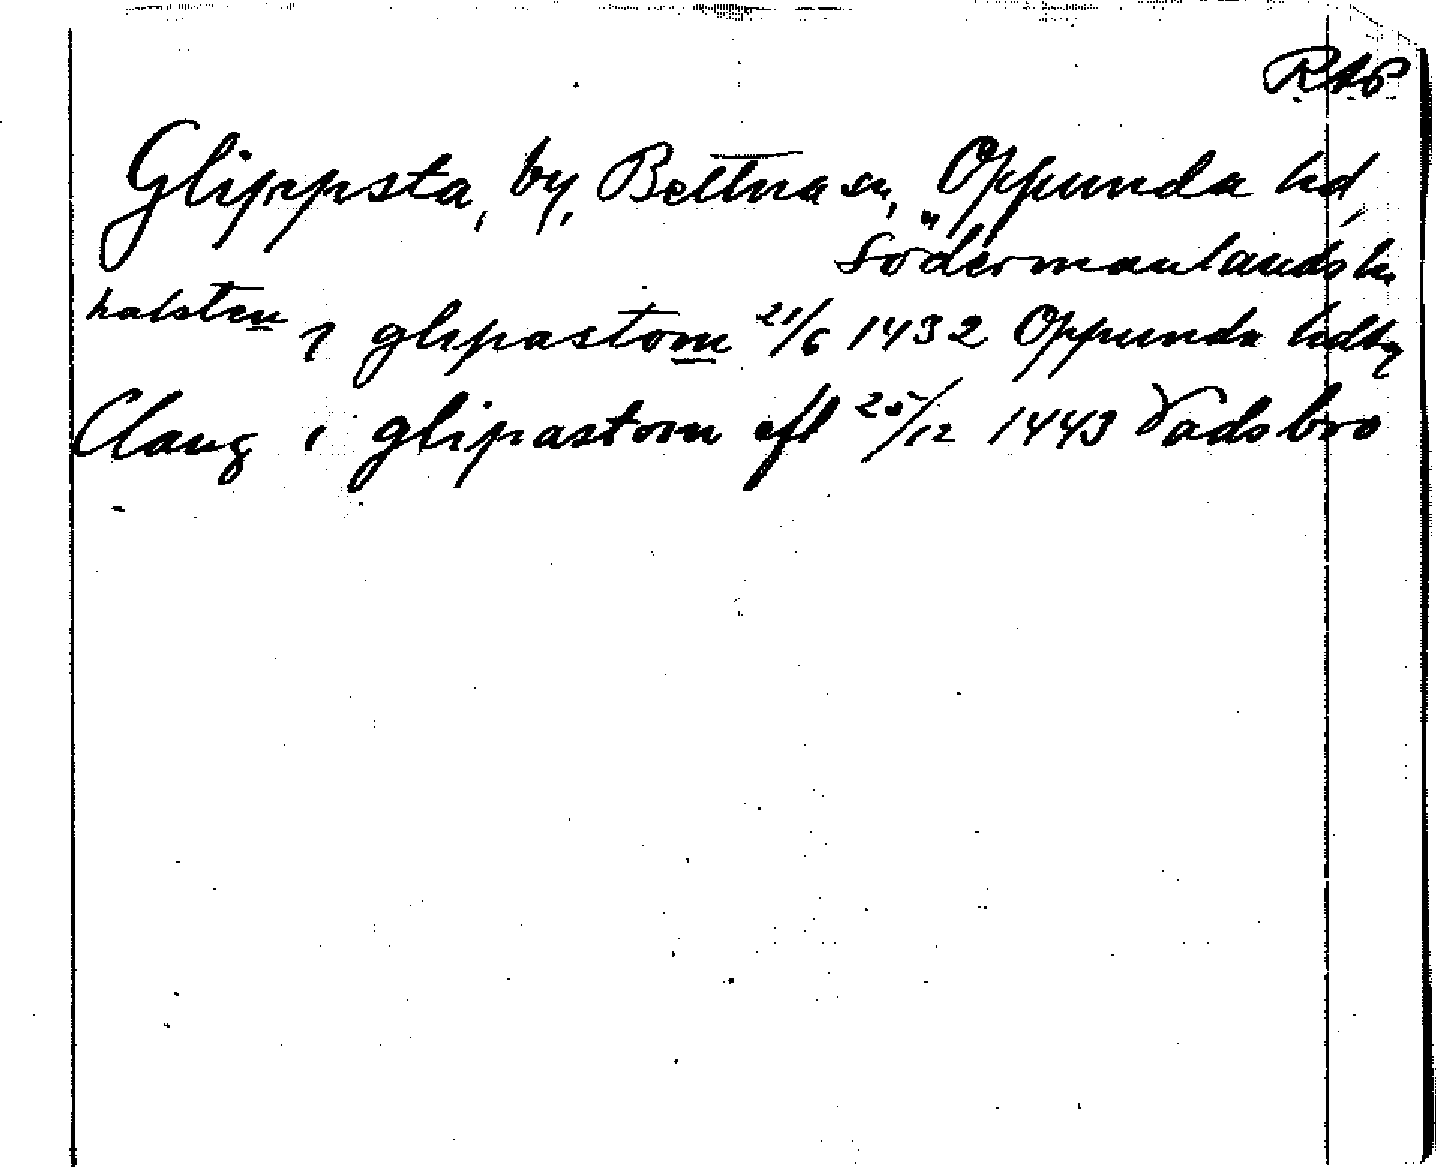 RAP
Glippsta, by, Bettna sn, Oppunda hd,
Södermanlands l.
halsten i glipastom 21/6 1432 Oppunda hdby
Claug i glipastom efl 25/12 1443 Vadsbro